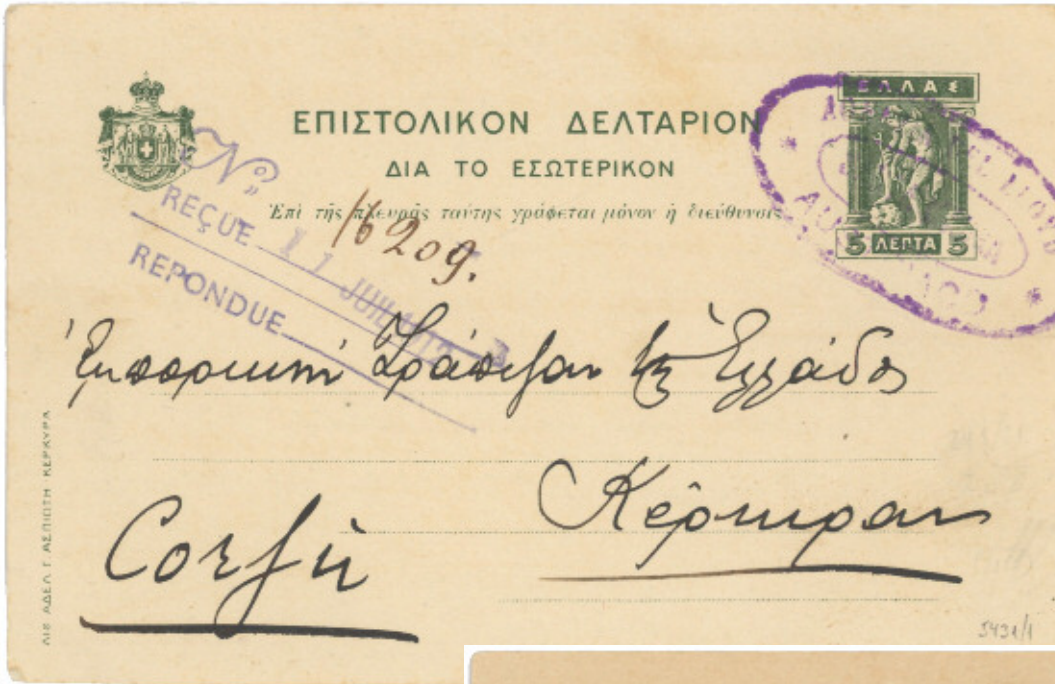 ΕΛΛΑΣ
ΕΠΙΣΤΟΛΙΚΟΝ ΔΕΛΤΑΡΙΟΝ
ΔΙΑ ΤΟ ΕΣΩΤΕΡΙΚΟΝ
Ἐπὶ τῆς πλευρᾶς ταύτης γράφεται μόνον ἡ διεύθυνσις
5 ΛΕΠΤΑ 5
Nº
16209.
REÇUE 11 JUIL
REPONDUE
Ἐμπορικὴν Τράπεζαν τῆς Ἑλλάδος
Κέρκυραν
Corfù
ΛΙΘ ΑΔΕΛ. Γ. ΑΣΠΙΩΤΗ ΚΕΡΚΥΡΑ
5431/1